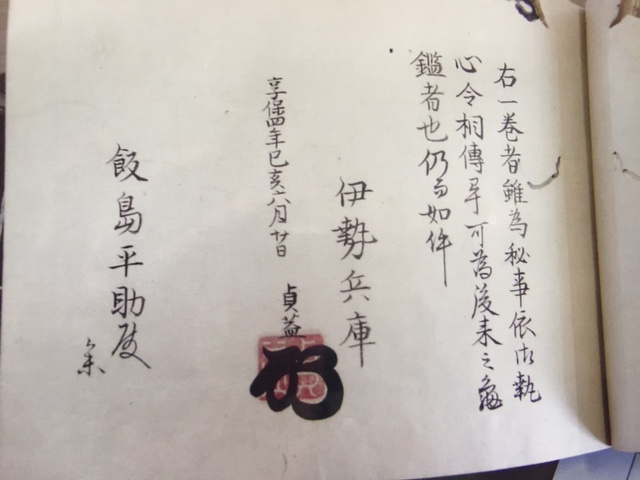 右一巻者雖為秘事依御執
心令相傳畢可為後来之亀
鑑者也仍而如件
伊勢兵庫
貞益
享保四年己亥六月廿日
飯島平助殿